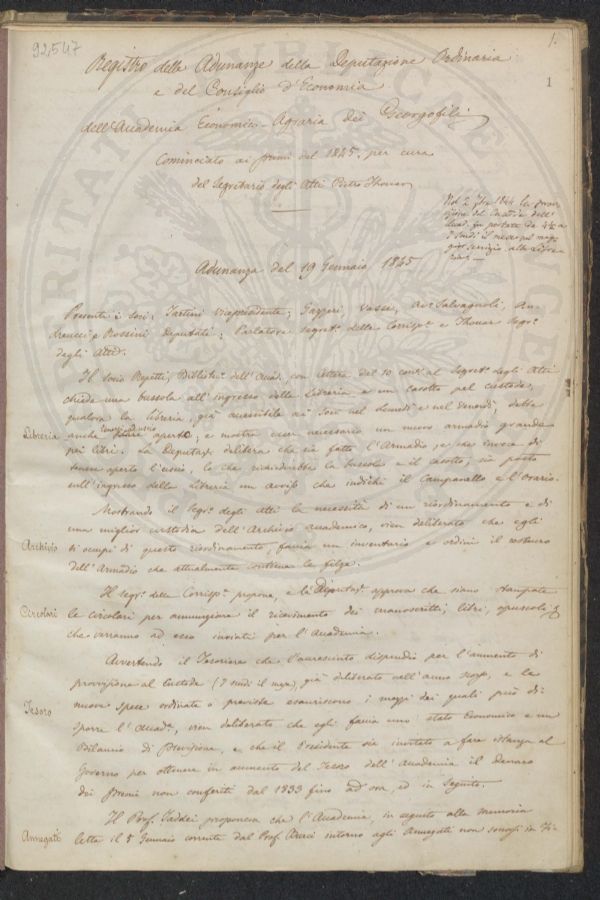 92547
1.
1
Registro delle Adunanze della Deputazione Ordinaria
e del Consiglio d'Economia
dell'Accademia Economico-Agraria dei Georgofili
Cominciato ai primi del 1845. per cura
del Segretario degli Atti Pietro Thouar
Nel 2 1844 la prov
visione del Custode dell'
Accad. fu portata da
scudi il mese pel mag
gior servizio alla Libre
ria;
Adunanza del 19 Gennaio 1845
Presenti i Soci: Tartini Vicepresidente; Gazzeri, Vasse, Salvagnoli, An-
dreucci e Rossini Deputati; Parlatore segret.º della Corrisp.ª e Thouar Segr.º
degli Atti.
Il socio Repetti, Bibliotec.º dell'Accad., con lettera del 10 corr.e al Segret.º degli Atti
chiede una bussola all'ingresso della Libreria e un casotto pel custode,
qualora la libreria già accessibile ai Soci nel lunedì e nel venerdì, debba
Libreria
anche tenersi aperta; e mostra esser necessario un nuovo armadio grande
pei libri. La Deputaz.e delibera che sia fatto l'Armadio, e che invece di
tenere aperto l'uscio, lo che richiederebbe la bussola e il casotto, sia posto
sull'ingresso della Libreria un avviso che indichi il Campanello e l'Orario.
Mostrando il Segr.º degli Atti la necessità di un riordinamento e di
una miglior custodia dell'Archivio accademico, vien deliberato che egli
Archivio
si occupi di questo riordinamento, faccia un inventario e ordini il restauro
dell'Armadio che attualmente contiene le filze.
Il Segr.º della Corrisp.ª propone, e la Deputaz.e approva che siano stampate
Circolari
le circolari per annunziare il ricevimento dei manoscritti, libri, opuscoli
che verranno ad essa inviati per l'Accademia.
Avvertendo il Tesoriere che l'accresciuto dispendio per l'aumento di
provvisione al Custode (7 scudi il mese), già deliberato nell'anno scorso, e le
Tesoro
nuove spese ordinate o previste esauriscono i mezzi dei quali può di-
sporre l'Accad.a, vien deliberato che egli faccia uno stato Economico e un
Bilancio di Previsione, e che il Presidente sia invitato a fare istanza al
Governo per ottenere in aumento del Tesoro dell'Accademia il denaro
dei premi non conferiti dal 1833 fino ad ora, ed in seguito.
Il Prof. Taddei proponeva che l'Accademia, in seguito alla memoria
Annegati
letta il 5 Gennaio corrente dal Prof. intorno agli Annegati non